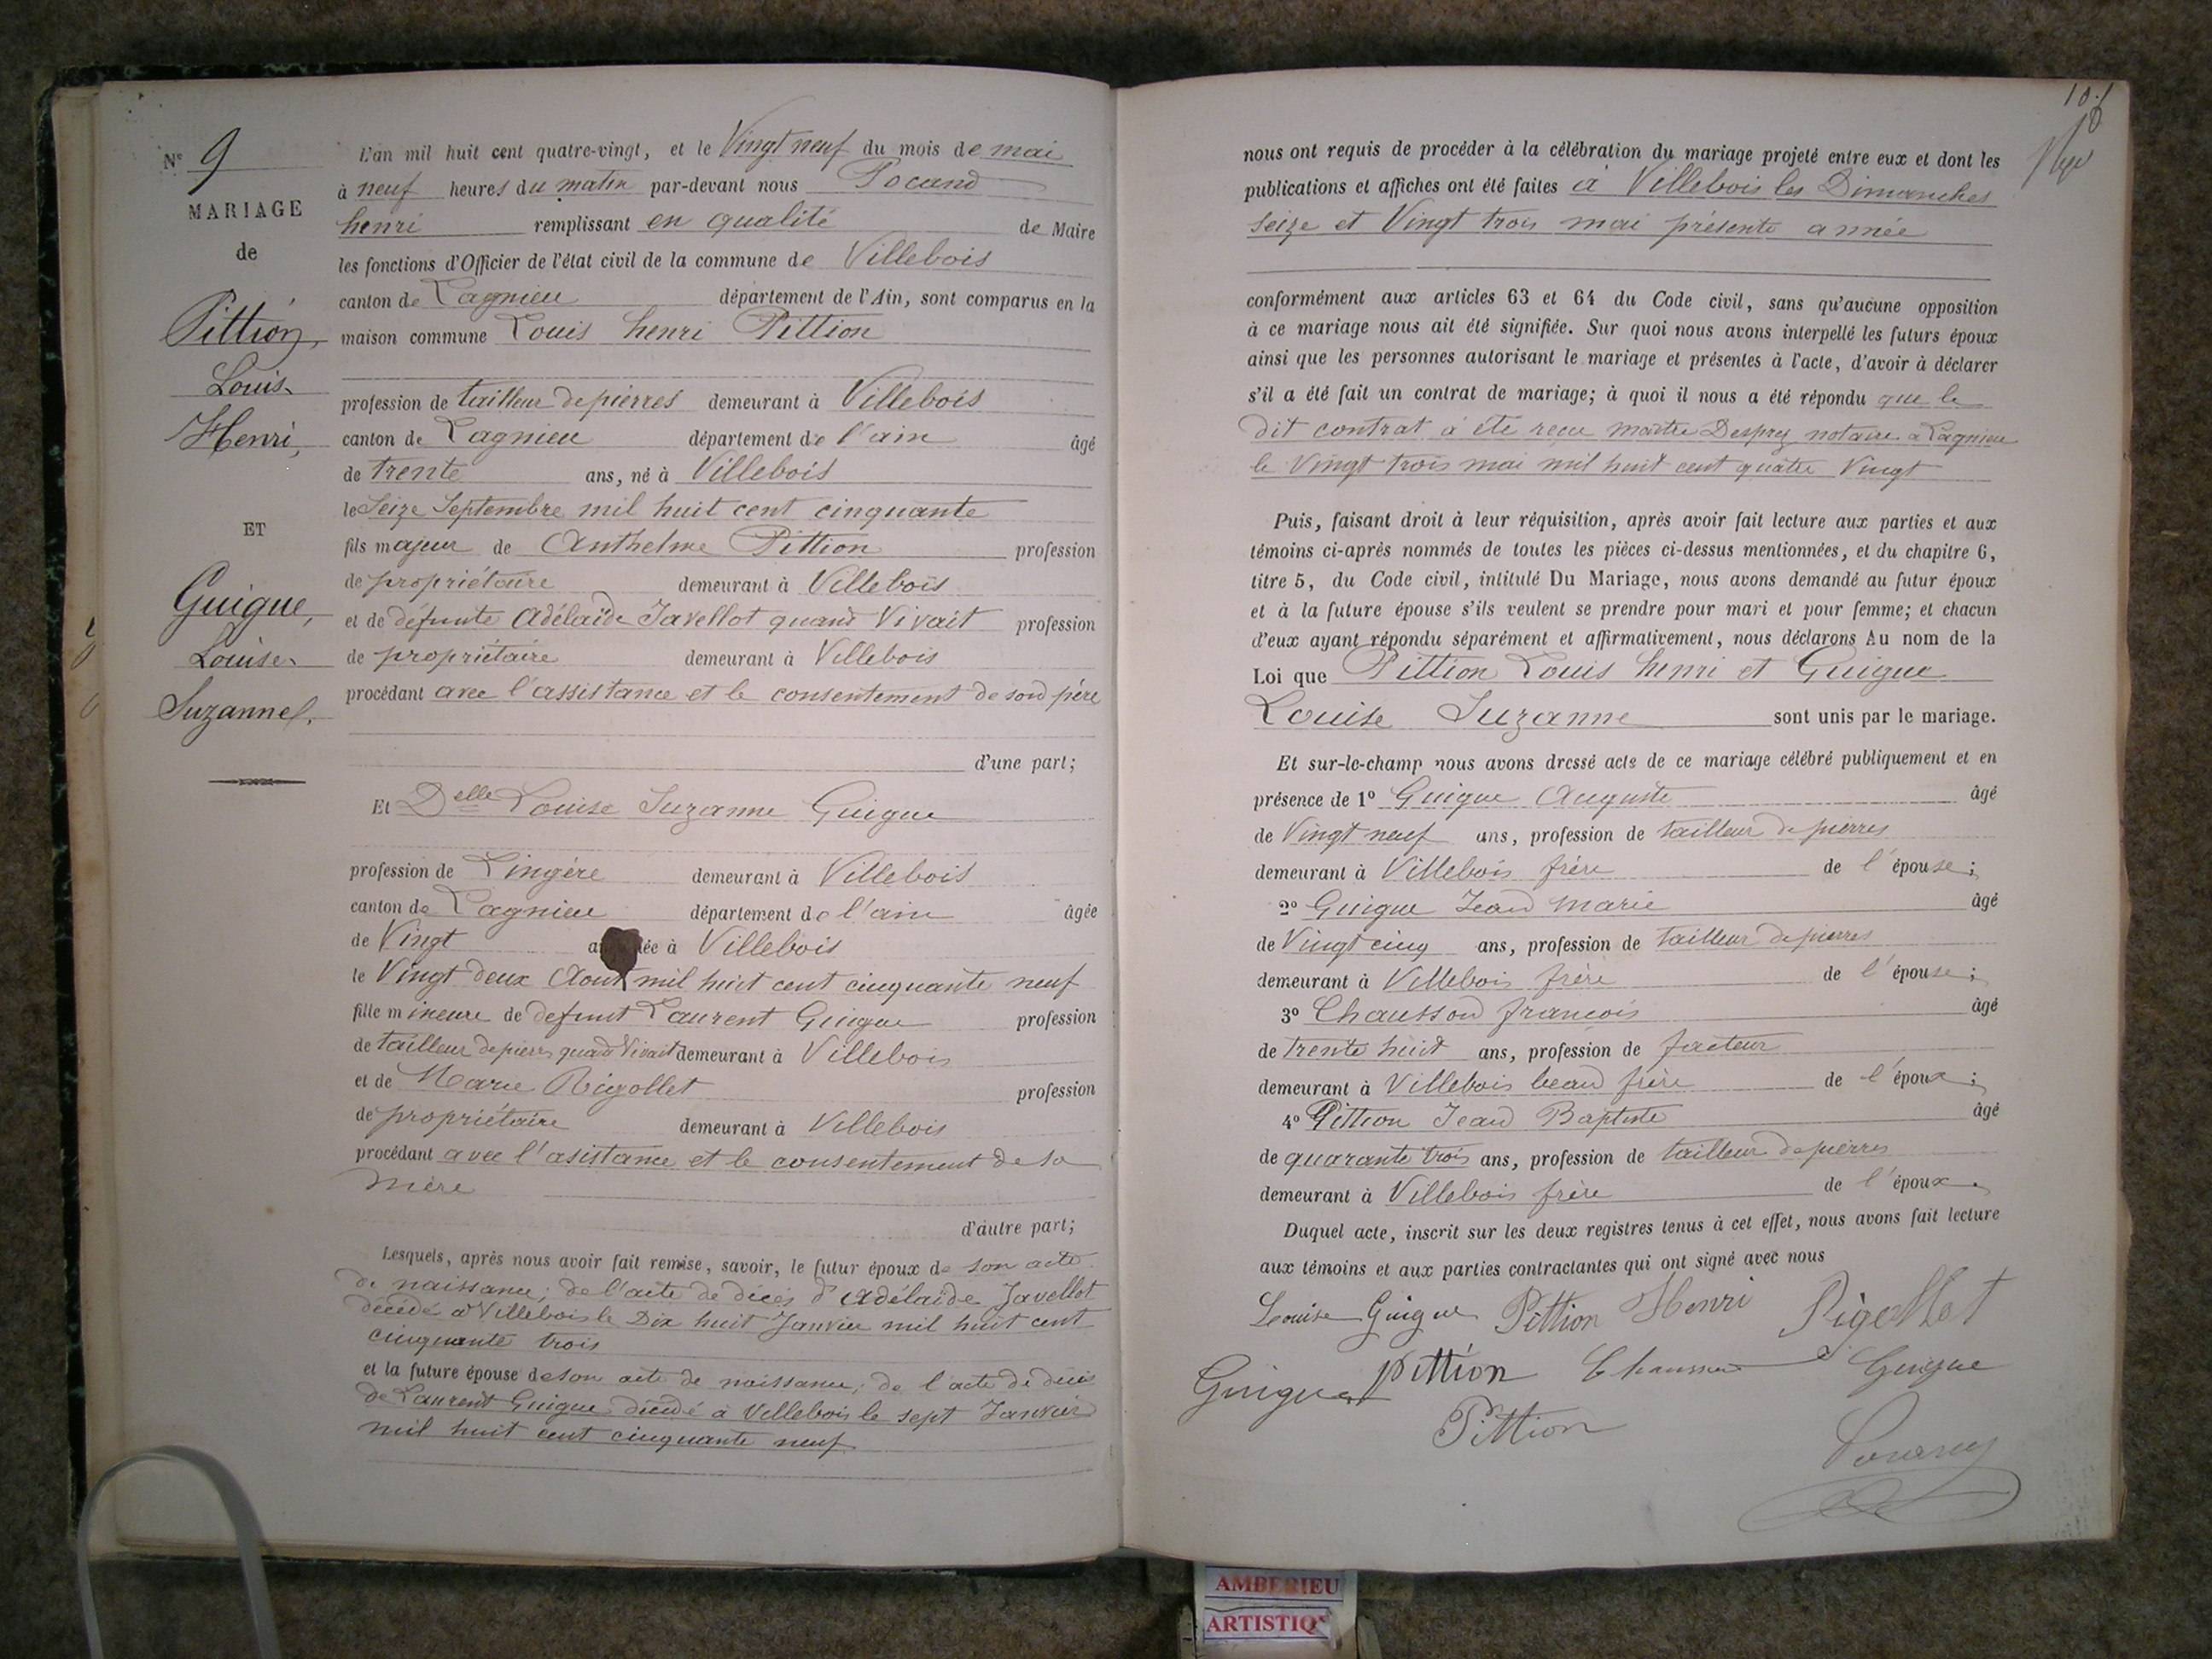 Nº 9
MARIAGE
de
Pittion,
Louis
Henri,
ET
Guigue,
Louise
Suzanne.
L'an mil huit cent quatre-vingt, et le Vingt neuf du mois de mai
à neuf heures du matin par-devant nous Pocand
henri remplissant en qualité de Maire
les fonctions d'Officier de l'état civil de la commune de Villebois
canton de Lagnieu département de l'Ain, sont comparus en la
maison commune Louis henri Pittion
profession de tailleur de pierres demeurant à Villebois
canton de Lagnieu département de l'ain âgé
de trente ans, né à Villebois
le Seize Septembre mil huit cent cinquante
fils majeur de Anthelme Pittion profession
de propriétaire demeurant à Villebois
et de défunte Adélaïde Javellot quand Vivait profession
de propriétaire demeurant à Villebois
procédant avec l'assistance et le consentement de son père
d'une part;
Et Delle Louise Suzanne Guigue
profession de Lingère demeurant à Villebois
canton de Lagnieu département de l'ain âgée
de Vingt née à Villebois
le Vingt deux Aout mil huit cent cinquante neuf
fille mineure de defunt Laurent Guigue profession
de tailleur de pierres quand Vivait demeurant à Villebois
et de Marie Rigollet profession
de propriétaire demeurant à Villebois
procédant avec l'asistance et le consentement de sa
mère
d'autre part;
Lesquels, après nous avoir fait remise, savoir, le futur époux de son acte
de naissance; de l'acte de décés d'Adélaïde Javellot
décédé à Villebois le Dix huit Janvier mil huit cent
cinquante trois
et la future épouse de son acte de naissance; de l'acte de décés
de Laurent Guigue décédé à Villebois le sept Janvier
mil huit cent cinquante neuf
nous ont requis de procéder à la célébration du mariage projeté entre eux et dont les
publications et affiches ont été faites à Villebois les Dimanches
seize et Vingt trois mai présente année
conformément aux articles 63 et 64 du Code civil, sans qu'aucune opposition
à ce mariage nous ait été signifiée. Sur quoi nous avons interpellé les futurs époux
ainsi que les personnes autorisant le mariage et présentes à l'acte, d'avoir à déclarer
s'il a été fait un contrat de mariage; à quoi il nous a été répondu que le
dit contrat à été recu maitre Desprez notaire à Lagnieu
le Vingt trois mai mil huit cent quatre Vingt
Puis, faisant droit à leur réquisition, après avoir fait lecture aux parties et aux
témoins ci-après nommés de toutes les pièces ci-dessus mentionnées, et du chapitre 6,
titre 5, du Code civil, intitulé Du Mariage, nous avons demandé au futur époux
et à la future épouse s'ils veulent se prendre pour mari et pour femme; et chacun
d'eux ayant répondu séparément et affirmativement, nous déclarons Au nom de la
Loi que Pittion Louis henri et Guigue
Louise Suzanne sont unis par le mariage.
Et sur-le-champ nous avons dressé acte de ce mariage célébré publiquement et en
présence de 1º Guigue Auguste âgé
de Vingt neuf ans, profession de tailleur de pierres
demeurant à Villebois frère de l'épouse;
2º Guigue Jean Marie âgé
de Vingt cinq ans, profession de tailleur de pierres
demeurant à Villebois frère de l'épouse;
3º Chausson françois âgé
de trente huit ans, profession de facteur
demeurant à Villebois beau frère de l'époux;
4º Pittion Jean Baptiste âgé
de quarante trois ans, profession de tailleur de pierres
demeurant à Villebois frère de l'époux.
Duquel acte, inscrit sur les deux registres tenus à cet effet, nous avons fait lecture
aux témoins et aux parties contractantes qui ont signé avec nous
Louise Guigue Pittion Henri Rigollot
Guigue pittion Chausson Guigue
Pittion
AMBERIEU
ARTISTIQ